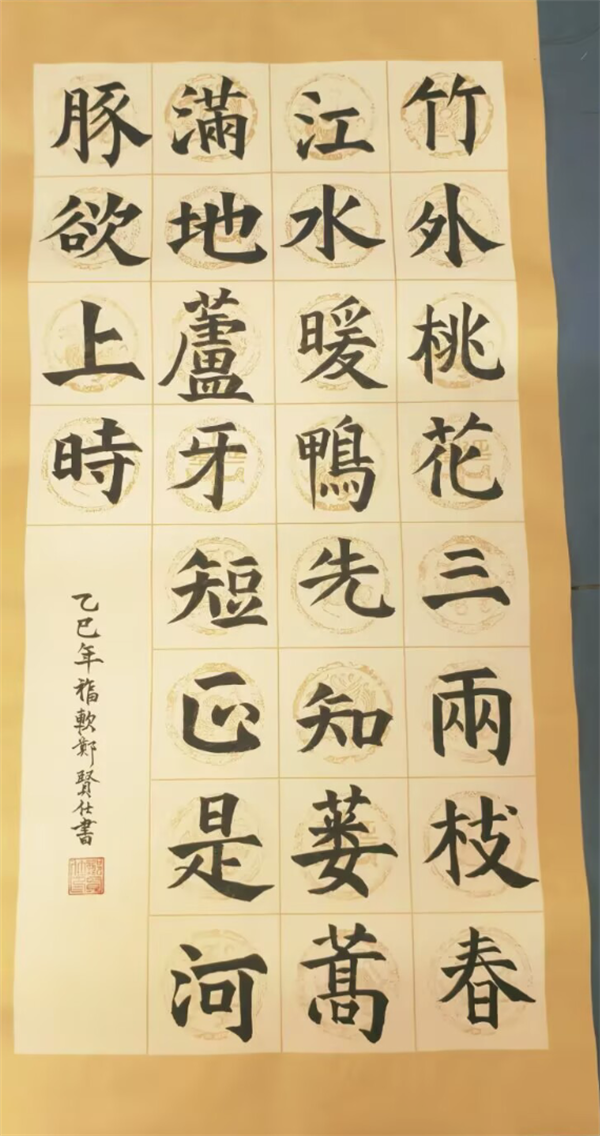 竹外桃花三兩枝春
江水暖鴨先知蔞蒿
滿地蘆牙短正是河
豚欲上時
乙巳年福軟鄭賢仕書